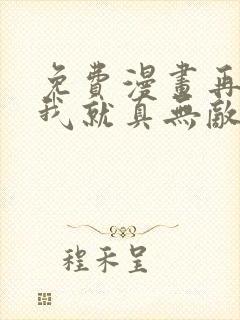 免費漫畫再
我就真無敵
程禾呈